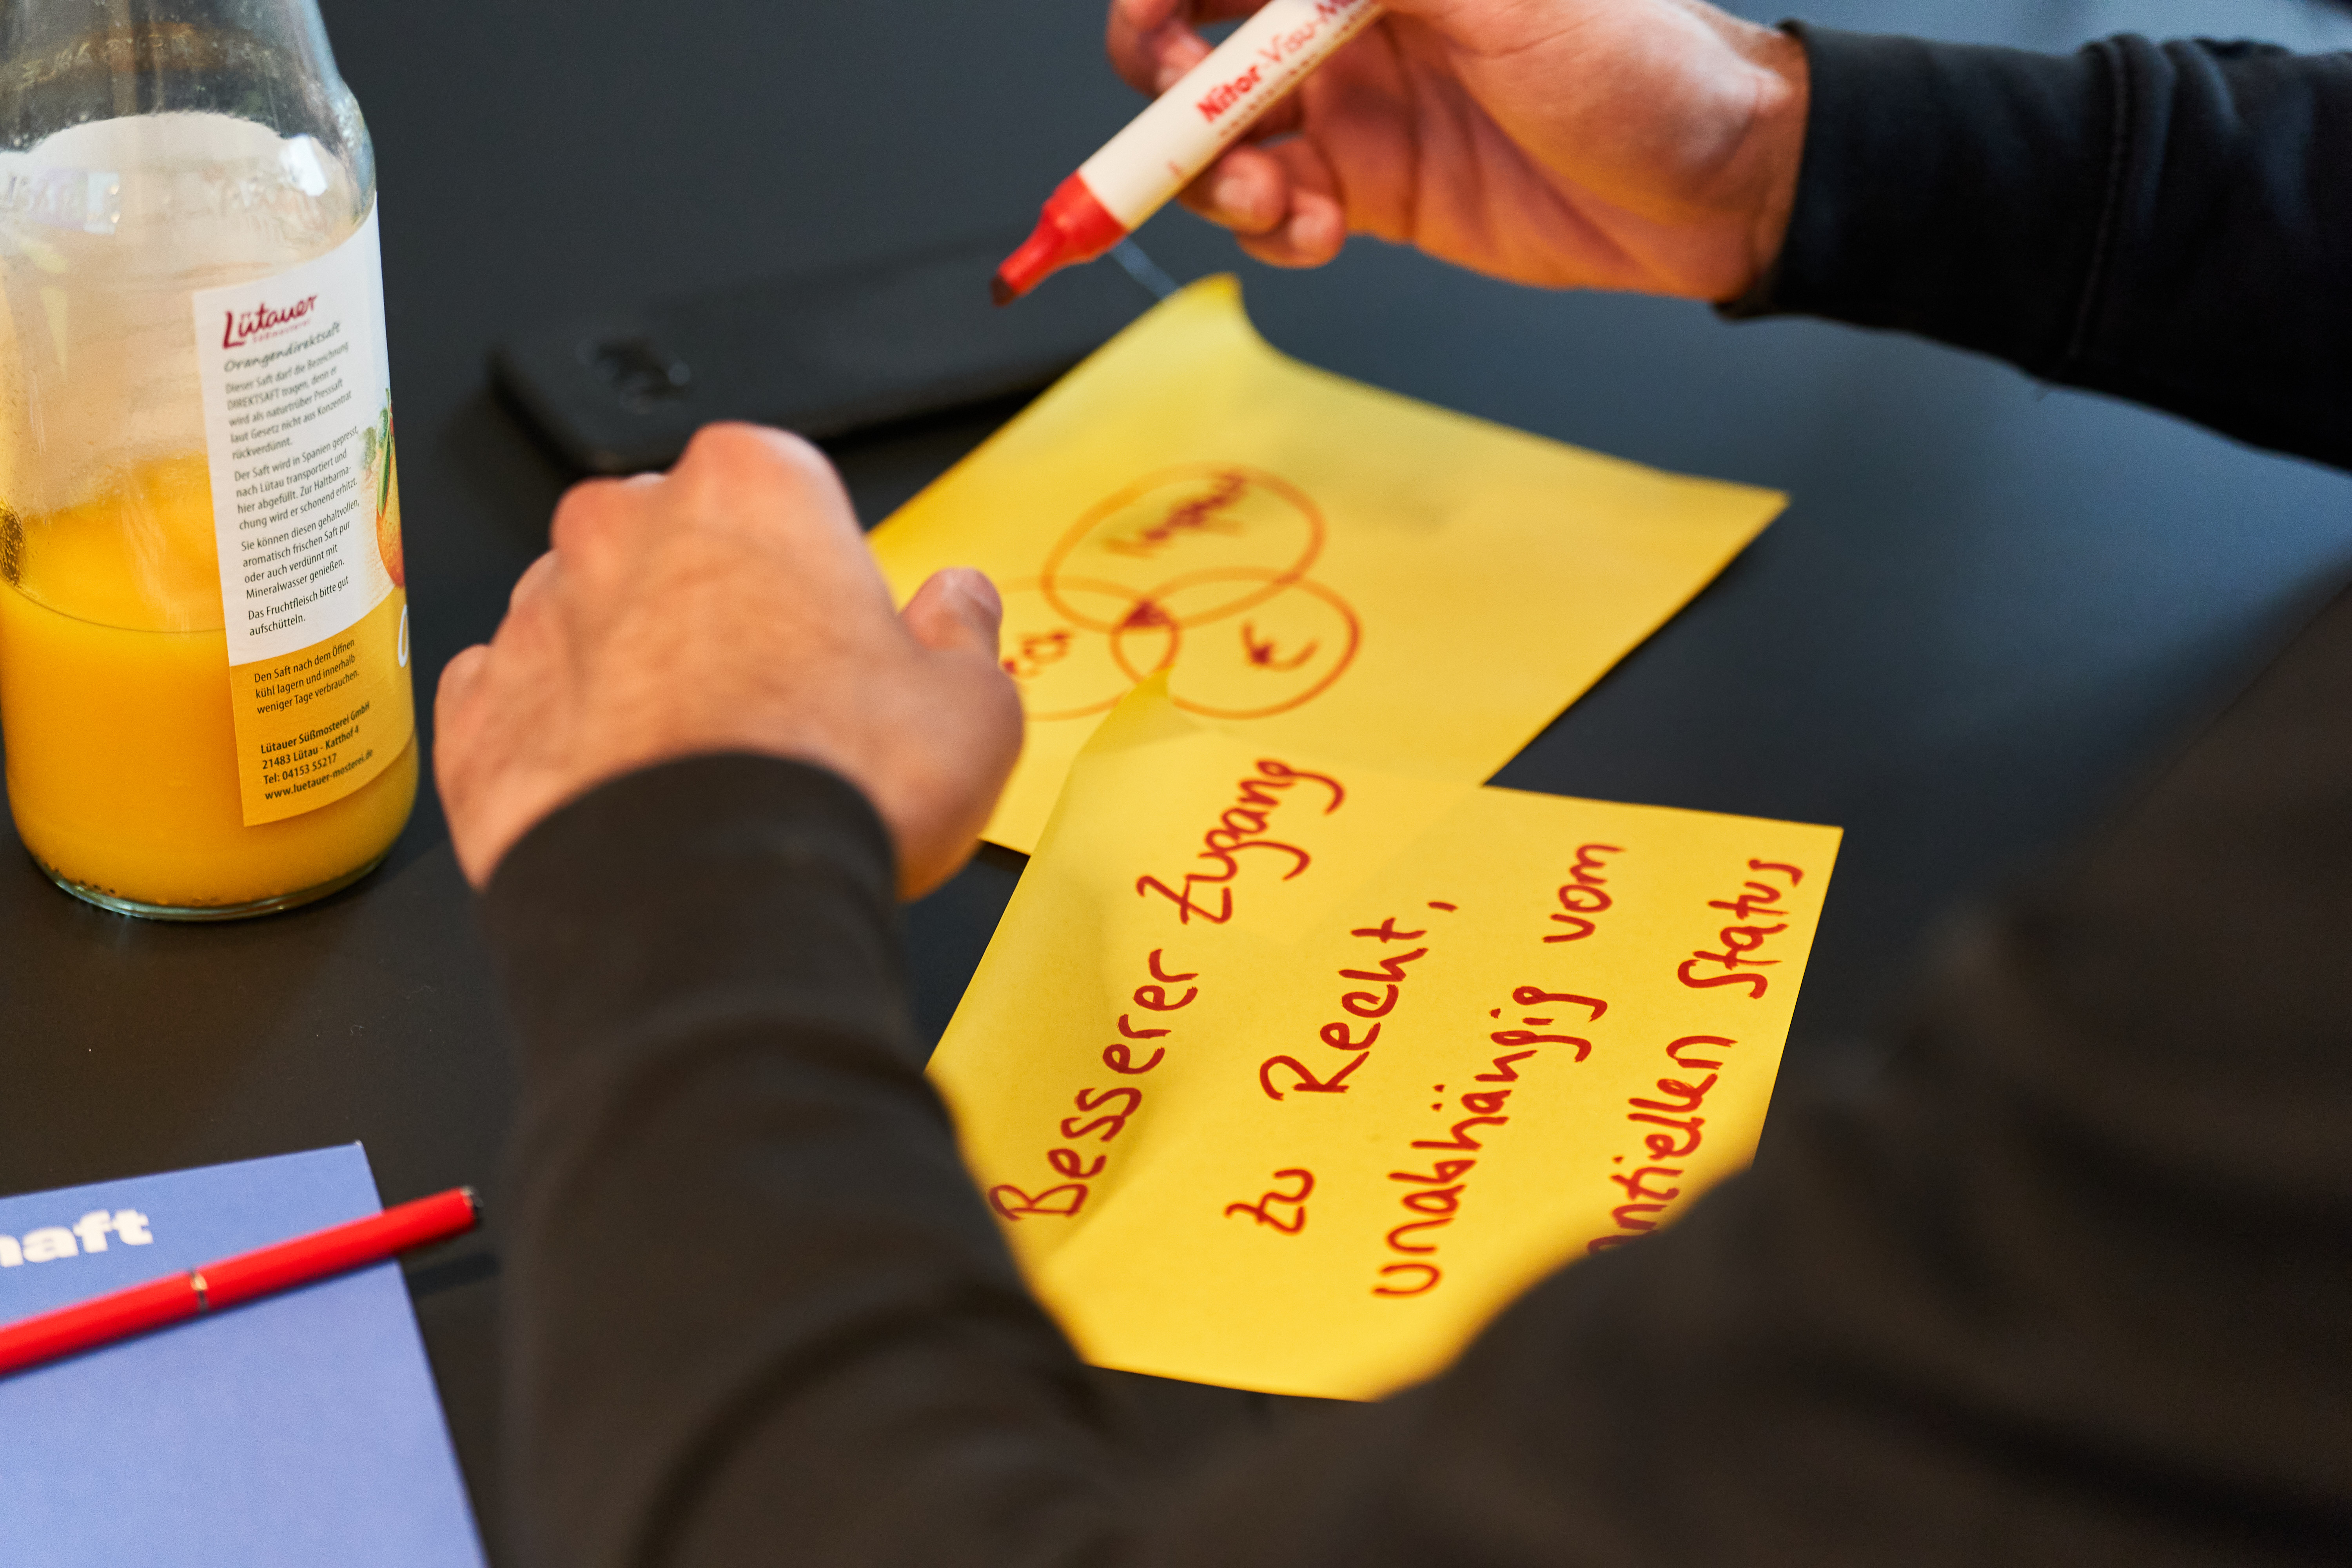 Lütauer
Süßmosterei
Orangendirektsaft
Dieser Saft darf die Bezeichnung
DIREKTSAFT tragen, denn er
wird als naturtrüber Presssaft
laut Gesetz nicht aus Konzentrat
rückverdünnt.
Der Saft wird in Spanien gepresst,
nach Lütau transportiert und
hier abgefüllt. Zur Haltbarma-
chung wird er schonend erhitzt.
Sie können diesen gehaltvollen,
aromatisch frischen Saft pur
oder auch verdünnt mit
Mineralwasser genießen.
Das Fruchtfleisch bitte gut
aufschütteln.
Den Saft nach dem Öffnen
kühl lagern und innerhalb
weniger Tage verbrauchen.
Lütauer Süßmosterei GmbH
21483 Lütau - Katthof 4
Tel: 04153 55217
www.luetauer-mosterei.de
Nitor Visu-M
€
Besserer Zugang
zu Recht,
unabhängig vom
antiellen Status
haft